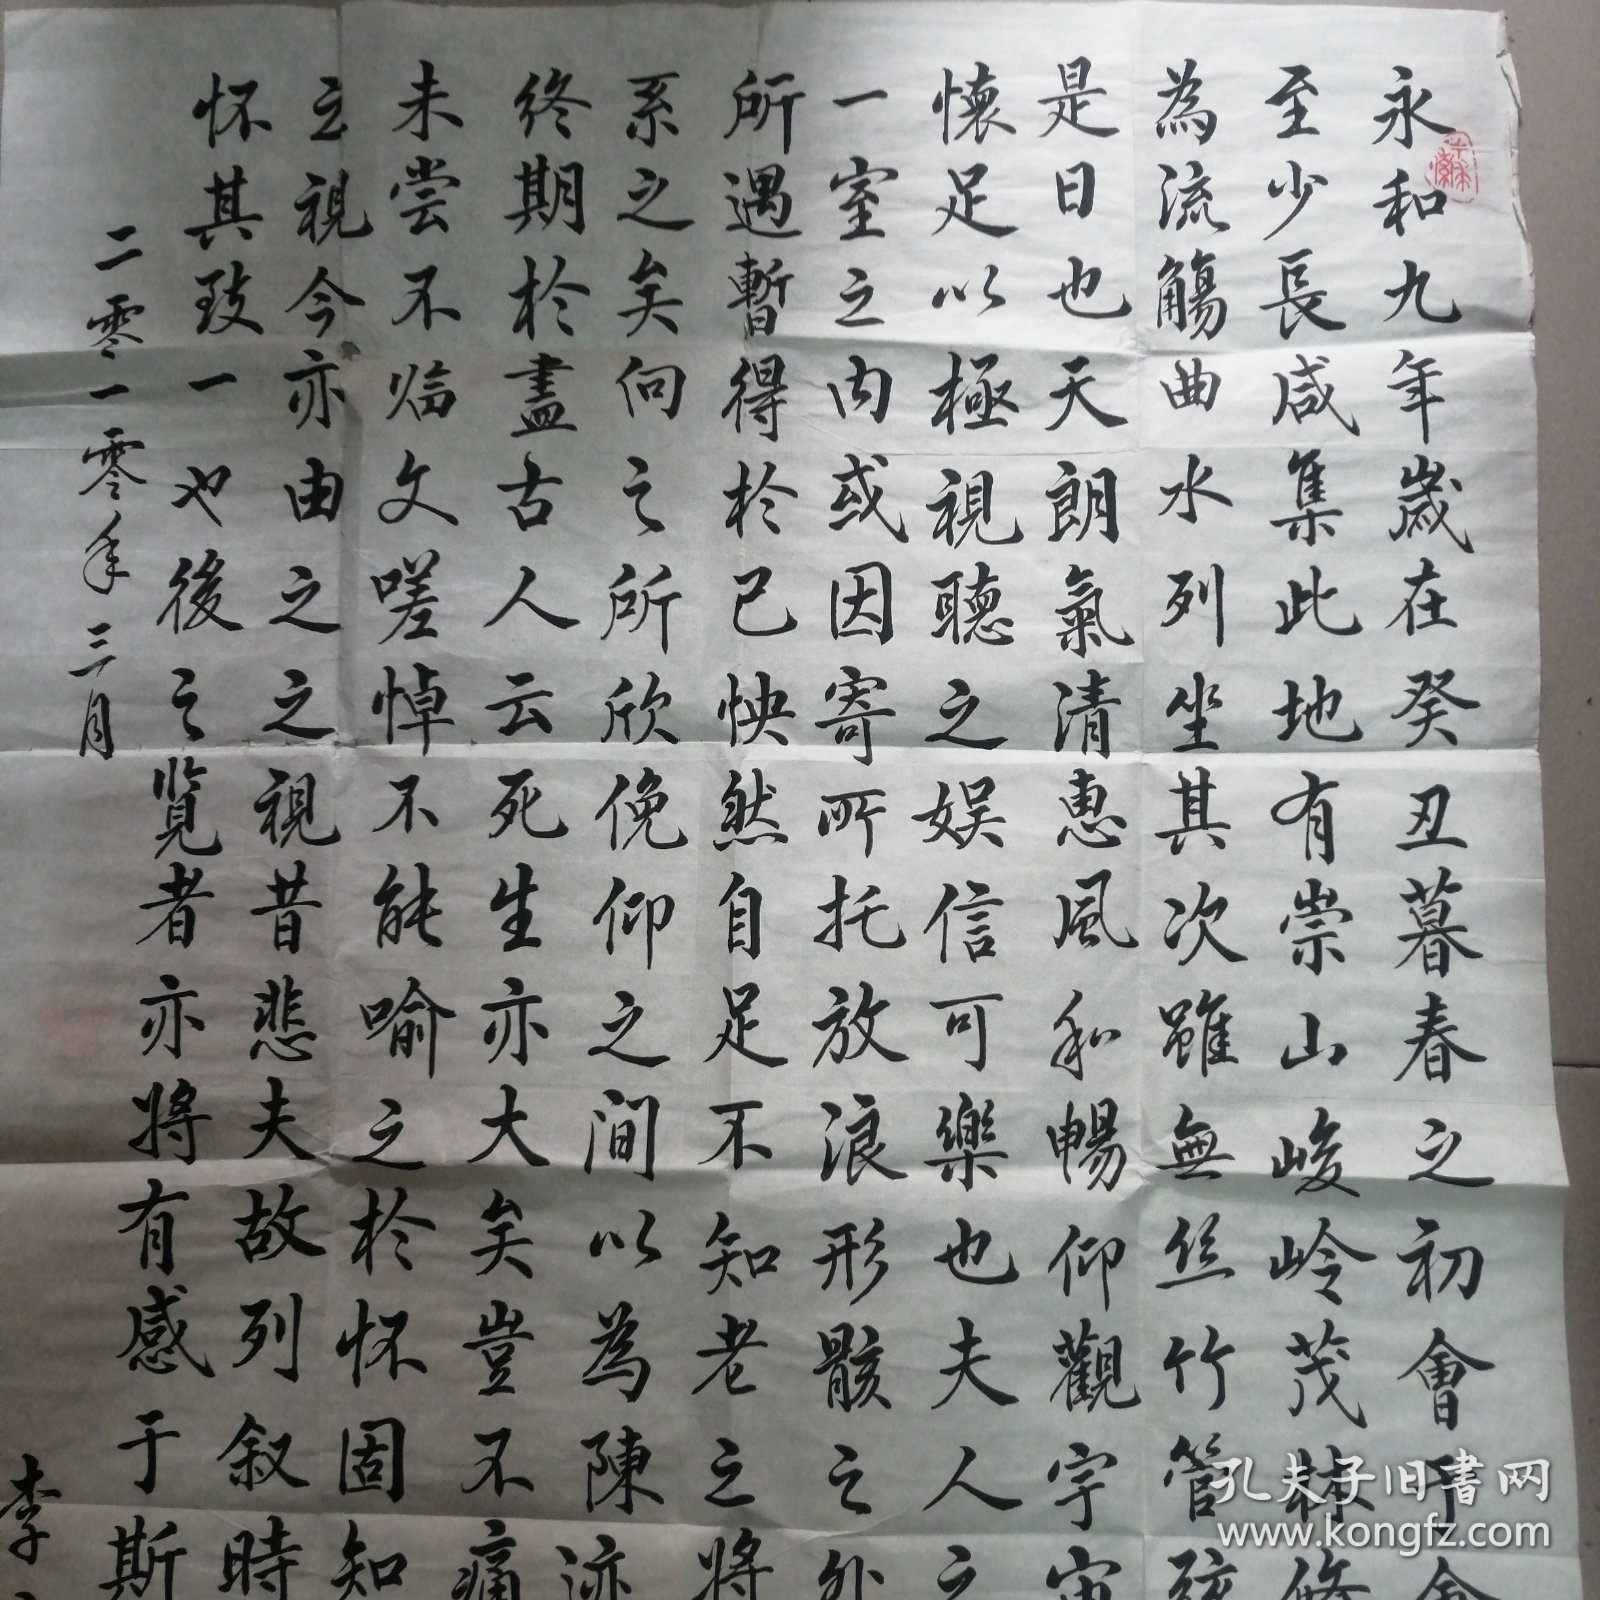 永和九年歲在癸丑暮春之初會于會
至少長咸集此地有崇山峻岭茂林修
為流觴曲水列坐其次雖無丝竹管弦
是日也天朗氣清惠風和暢仰觀宇宙
懐足以極視聽之娱信可樂也夫人之
一室之内或因寄所托放浪形骸之外
所遇暫得於己怏然自足不知老之将
系之矣向之所欣俛仰之间以為陳迹
终期於盡古人云死生亦大矣豈不痛
未尝不临文嗟悼不能喻之於怀固知
之視今亦由之之視昔悲夫故列叙時
怀其致一也後之览者亦将有感于斯
二零一零年三月
李
孔夫子旧書网
www.kongfz.com